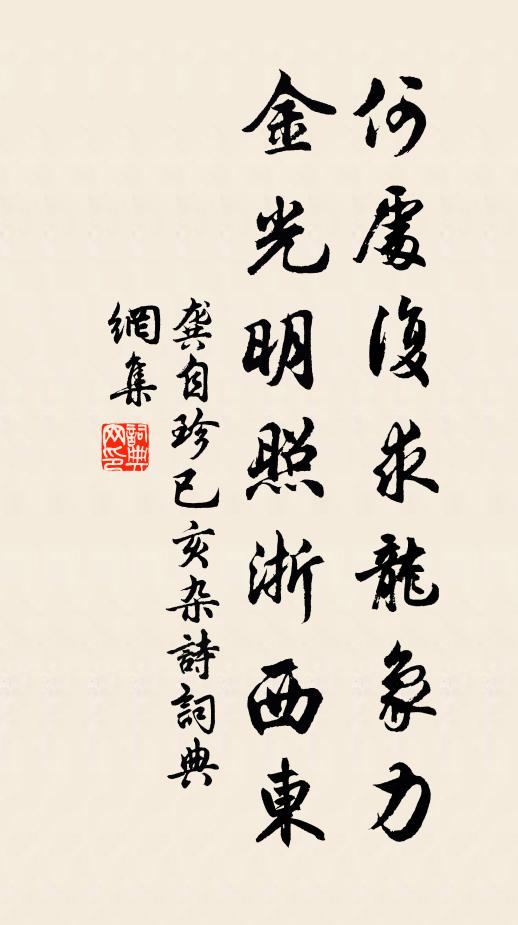 何處復求龍象力
金光明照浙西東
龔自珍己亥杂詩詞典
網集
詞典
网印